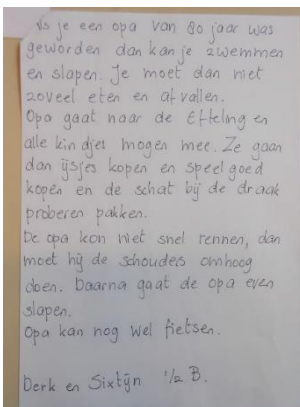 Als je een opa van 80 jaar was
geworden dan kan je zwemmen
en slapen. Je moet dan niet
zoveel eten en afvallen.
Opa gaat naar de Efteling en
alle kindjes mogen mee. Ze gaan
dan ijsjes kopen en speelgoed
kopen en de schat bij de draak
proberen pakken.
De opa kon niet snel rennen, dan
moet hij de schouders omhoog
doen. Daarna gaat de opa even
slapen.
Opa kan nog wel fietsen.
Derk en Sixtijn 1/2 B.